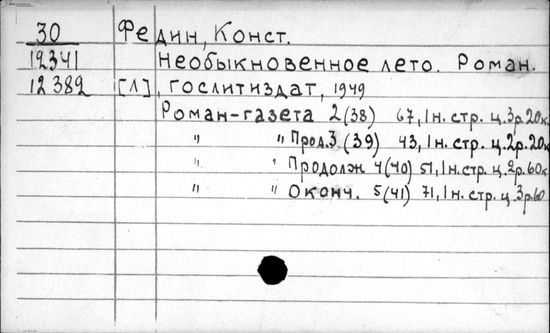 30 Федин, Конст.
12341 Необыкновенное лето. Роман.
12382 [Л], Гослитиздат, 1949
Роман-газета 2(38) 67, 1н. стр. ц. 3р. 20к
" " Прод. 3 (39) 43, 1н. стр. ц. 2р. 20к
" " Продолж 4(40) 51, 1н. стр. ц. 2р. 60к
" " Оконч. 5(41) 71, 1н. стр. ц. 3р. 60